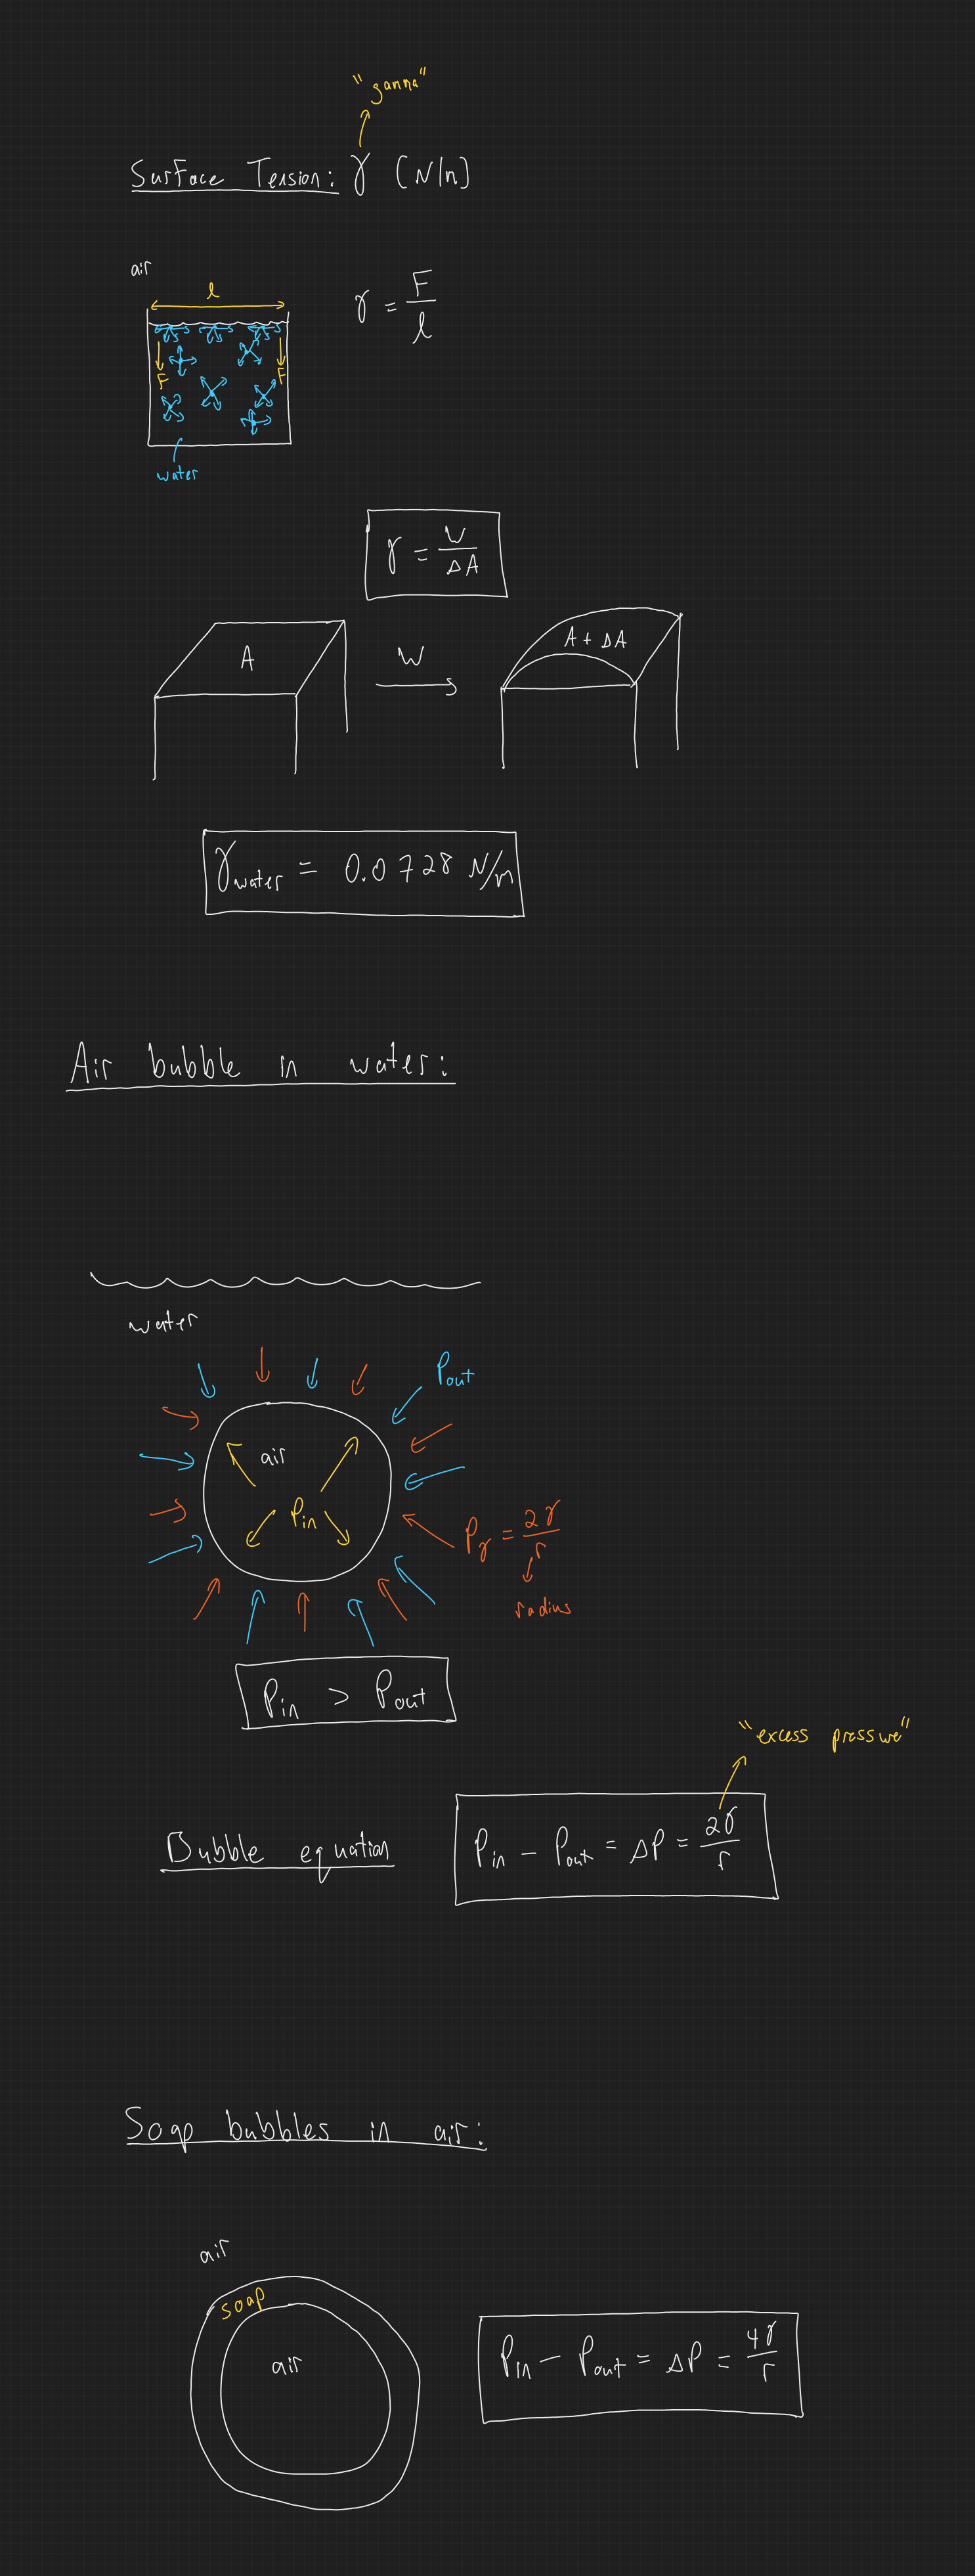 "gamma"
Surface Tension: γ (N/m)
air
l
γ = F/l
F F
water
γ = W/ΔA
A
W
A + ΔA
γwater = 0.0728 N/m
Air bubble in water:
water
Pout
air
Pin
Pγ = 2γ/r
radius
Pin > Pout
"excess pressure"
Bubble equation
Pin - Pout = ΔP = 2γ/r
Soap bubbles in air:
air
soap
air
Pin - Pout = ΔP = 4γ/r